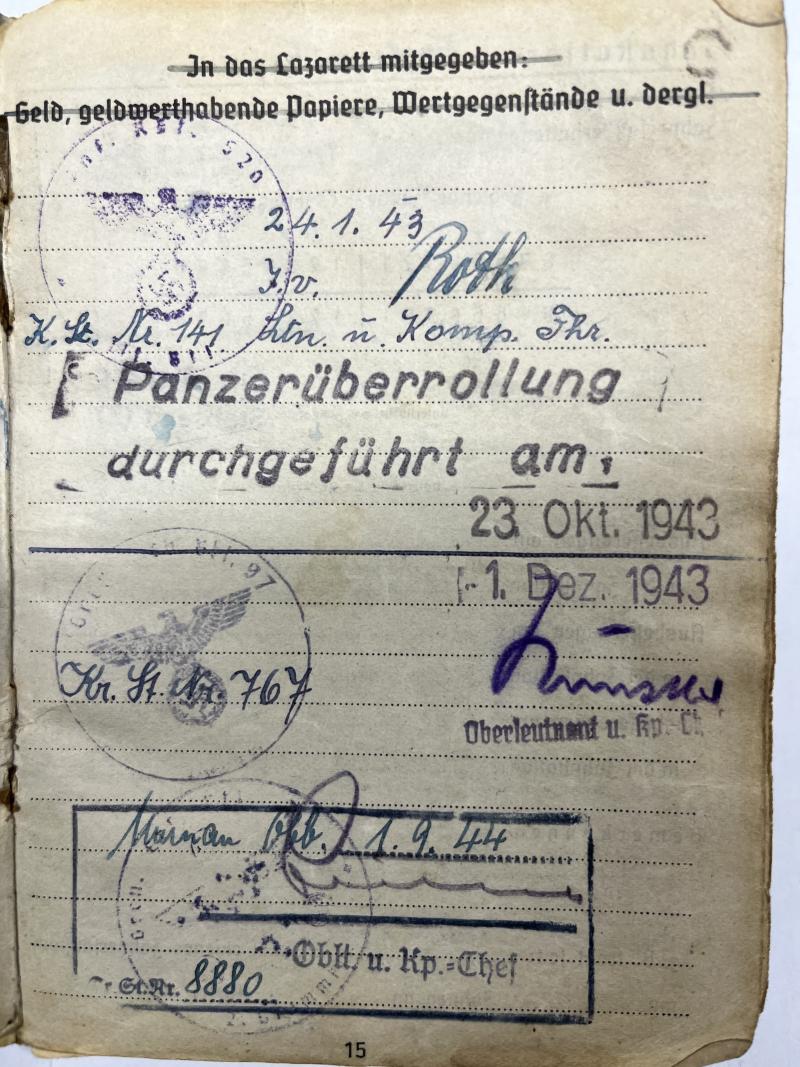 In das Lazarett mitgegeben:
Geld, geldwerthabende Papiere, Wertgegenstände u. dergl.
520
24.1.43
I.v. Roth
K. St. Nr. 141 Ltn. u. Komp. Fhr.
Panzerüberrollung
durchgeführt am
23. Okt. 1943
97
1. Dez. 1943
Kr. St. Nr. 767
Oberleutnant u. Kp.-Ch
Murnau Obb. 1.9.44
Oblt. u. Kp.-Chef
St.Nr. 8880
15